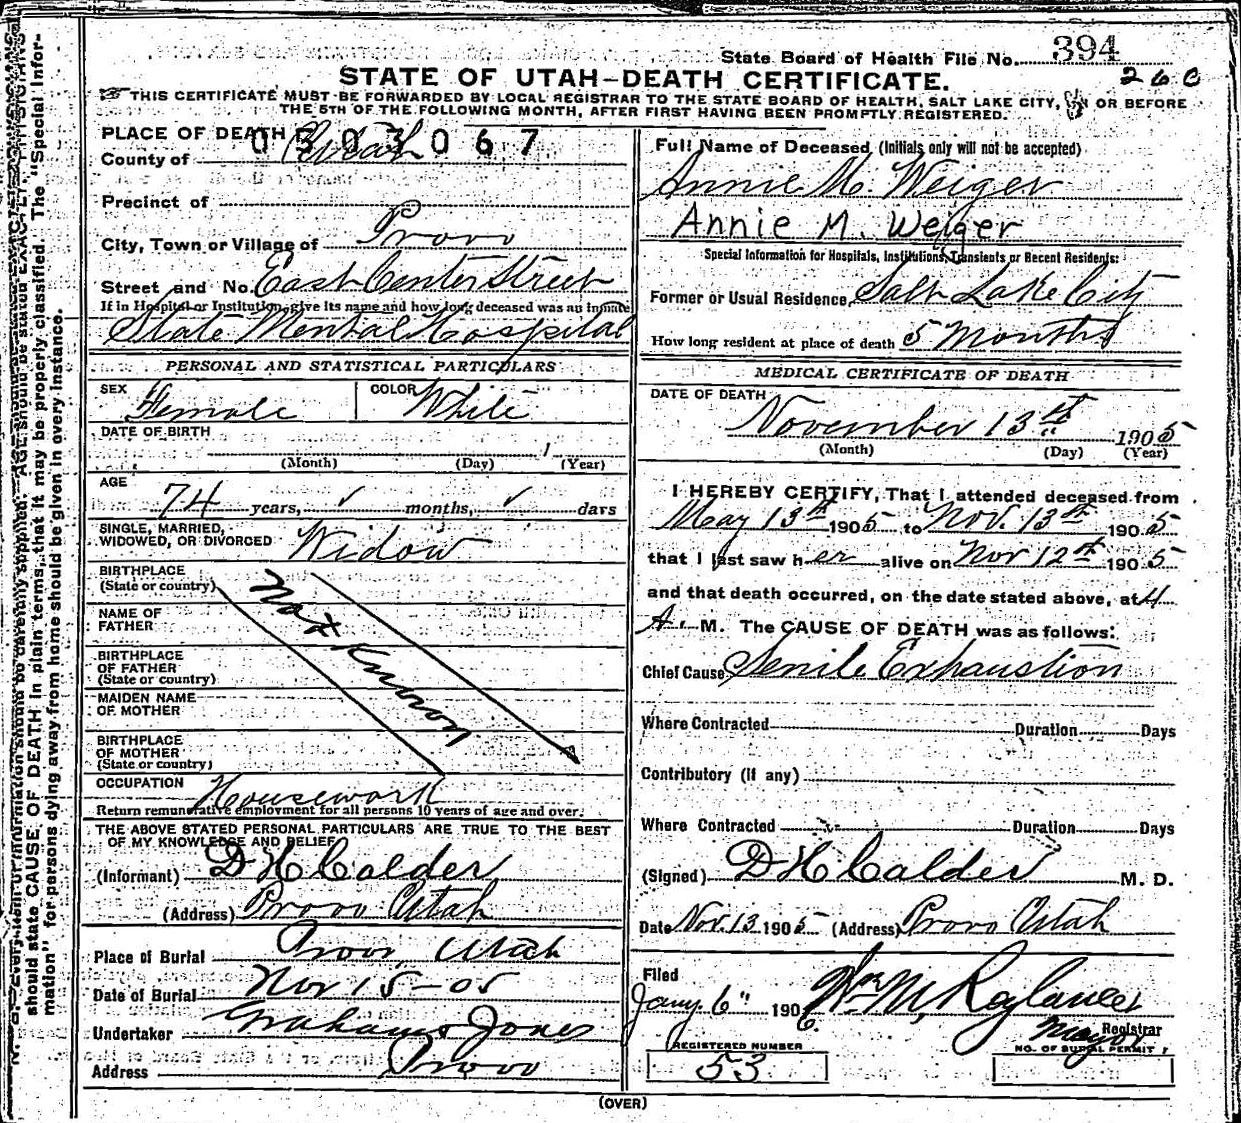 State Board of Health File No. 394
STATE OF UTAH—DEATH CERTIFICATE.
260
THIS CERTIFICATE MUST BE FORWARDED BY LOCAL REGISTRAR TO THE STATE BOARD OF HEALTH, SALT LAKE CITY, OR BEFORE
THE 5TH OF THE FOLLOWING MONTH, AFTER FIRST HAVING BEEN PROMPTLY REGISTERED.
PLACE OF DEATH
0503067
County of Utah
Precinct of
City, Town or Village of Provo
Street and No. East Center Street
If in Hospital or Institution, give its name and how long deceased was an inmate
State Mental Hospital
Full Name of Deceased (Initials only will not be accepted)
Annie M. Weiger
Annie M. Weiger
Special Information for Hospitals, Institutions, Transients or Recent Residents:
Former or Usual Residence, Salt Lake City
How long resident at place of death 5 Months
PERSONAL AND STATISTICAL PARTICULARS
SEX Female COLOR White
DATE OF BIRTH
1
(Month) (Day) (Year)
AGE
74 years, ✓ months, ✓ days
SINGLE, MARRIED,
WIDOWED, OR DIVORCED Widow
BIRTHPLACE
(State or country)
NAME OF
FATHER
BIRTHPLACE
OF FATHER
(State or country)
MAIDEN NAME
OF MOTHER
BIRTHPLACE
OF MOTHER
(State or country)
Not Known
OCCUPATION
Housework
Return remunerative employment for all persons 10 years of age and over.
THE ABOVE STATED PERSONAL PARTICULARS ARE TRUE TO THE BEST
OF MY KNOWLEDGE AND BELIEF
(Informant) D H Calder
(Address) Provo Utah
Place of Burial Provo, Utah
Date of Burial Nov 15-05
Undertaker Graham Jones
Address Provo
MEDICAL CERTIFICATE OF DEATH
DATE OF DEATH
November 13th 1905
(Month) (Day) (Year)
I HEREBY CERTIFY, That I attended deceased from
May 13th 1905 to Nov. 13th 1905
that I last saw her alive on Nov 12th 1905
and that death occurred, on the date stated above, at 4
A. M. The CAUSE OF DEATH was as follows:
Chief Cause Senile Exhaustion
Where Contracted Duration Days
Contributory (if any)
Where Contracted Duration Days
(Signed) D H Calder M. D.
Date Nov. 13 1905 (Address) Provo Utah
Filed
Jany 6" 1906. Wm M,
Registrar
REGISTERED NUMBER
53
NO. OF BURIAL PERMIT
(OVER)
should state CAUSE OF DEATH in plain terms, that it may be properly classified. The "Special Infor-
mation" for persons dying away from home should be given in every instance.